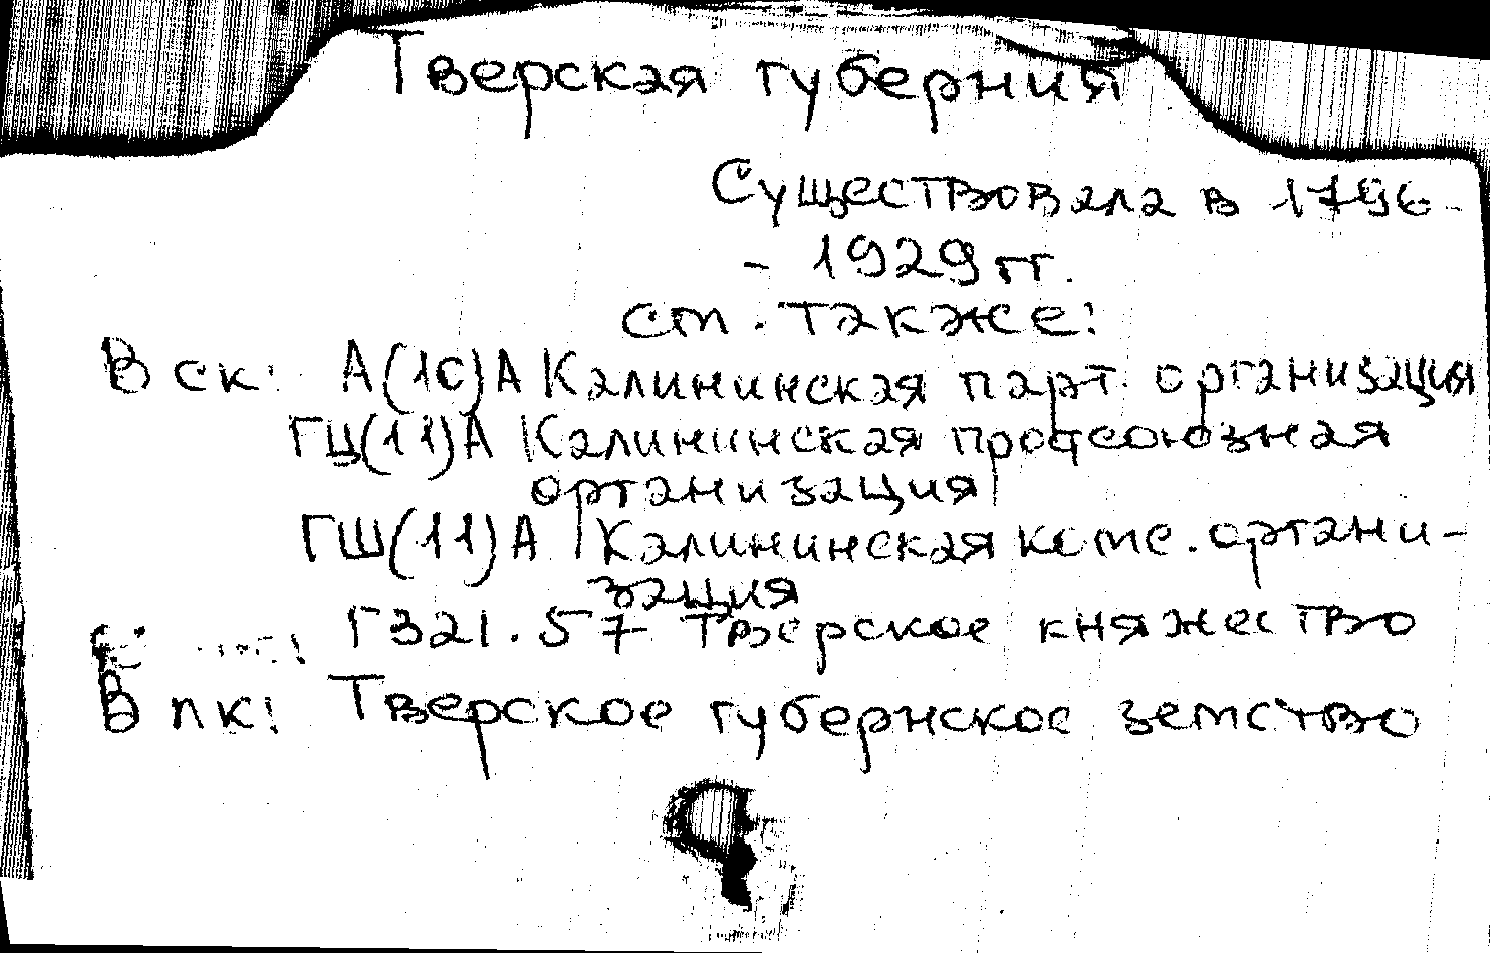 Тверская губерния
Существовала в 1796-
- 1929 гг.
см. также:
В ск: А(1С)А Калининская парт. организация
ГЦ(11)А Калининская профсоюзная
организация
ГШ(11)А Калининская комс. органи-
зация
Г321.57 Тверское княжество
В пк: Тверское губернское земство